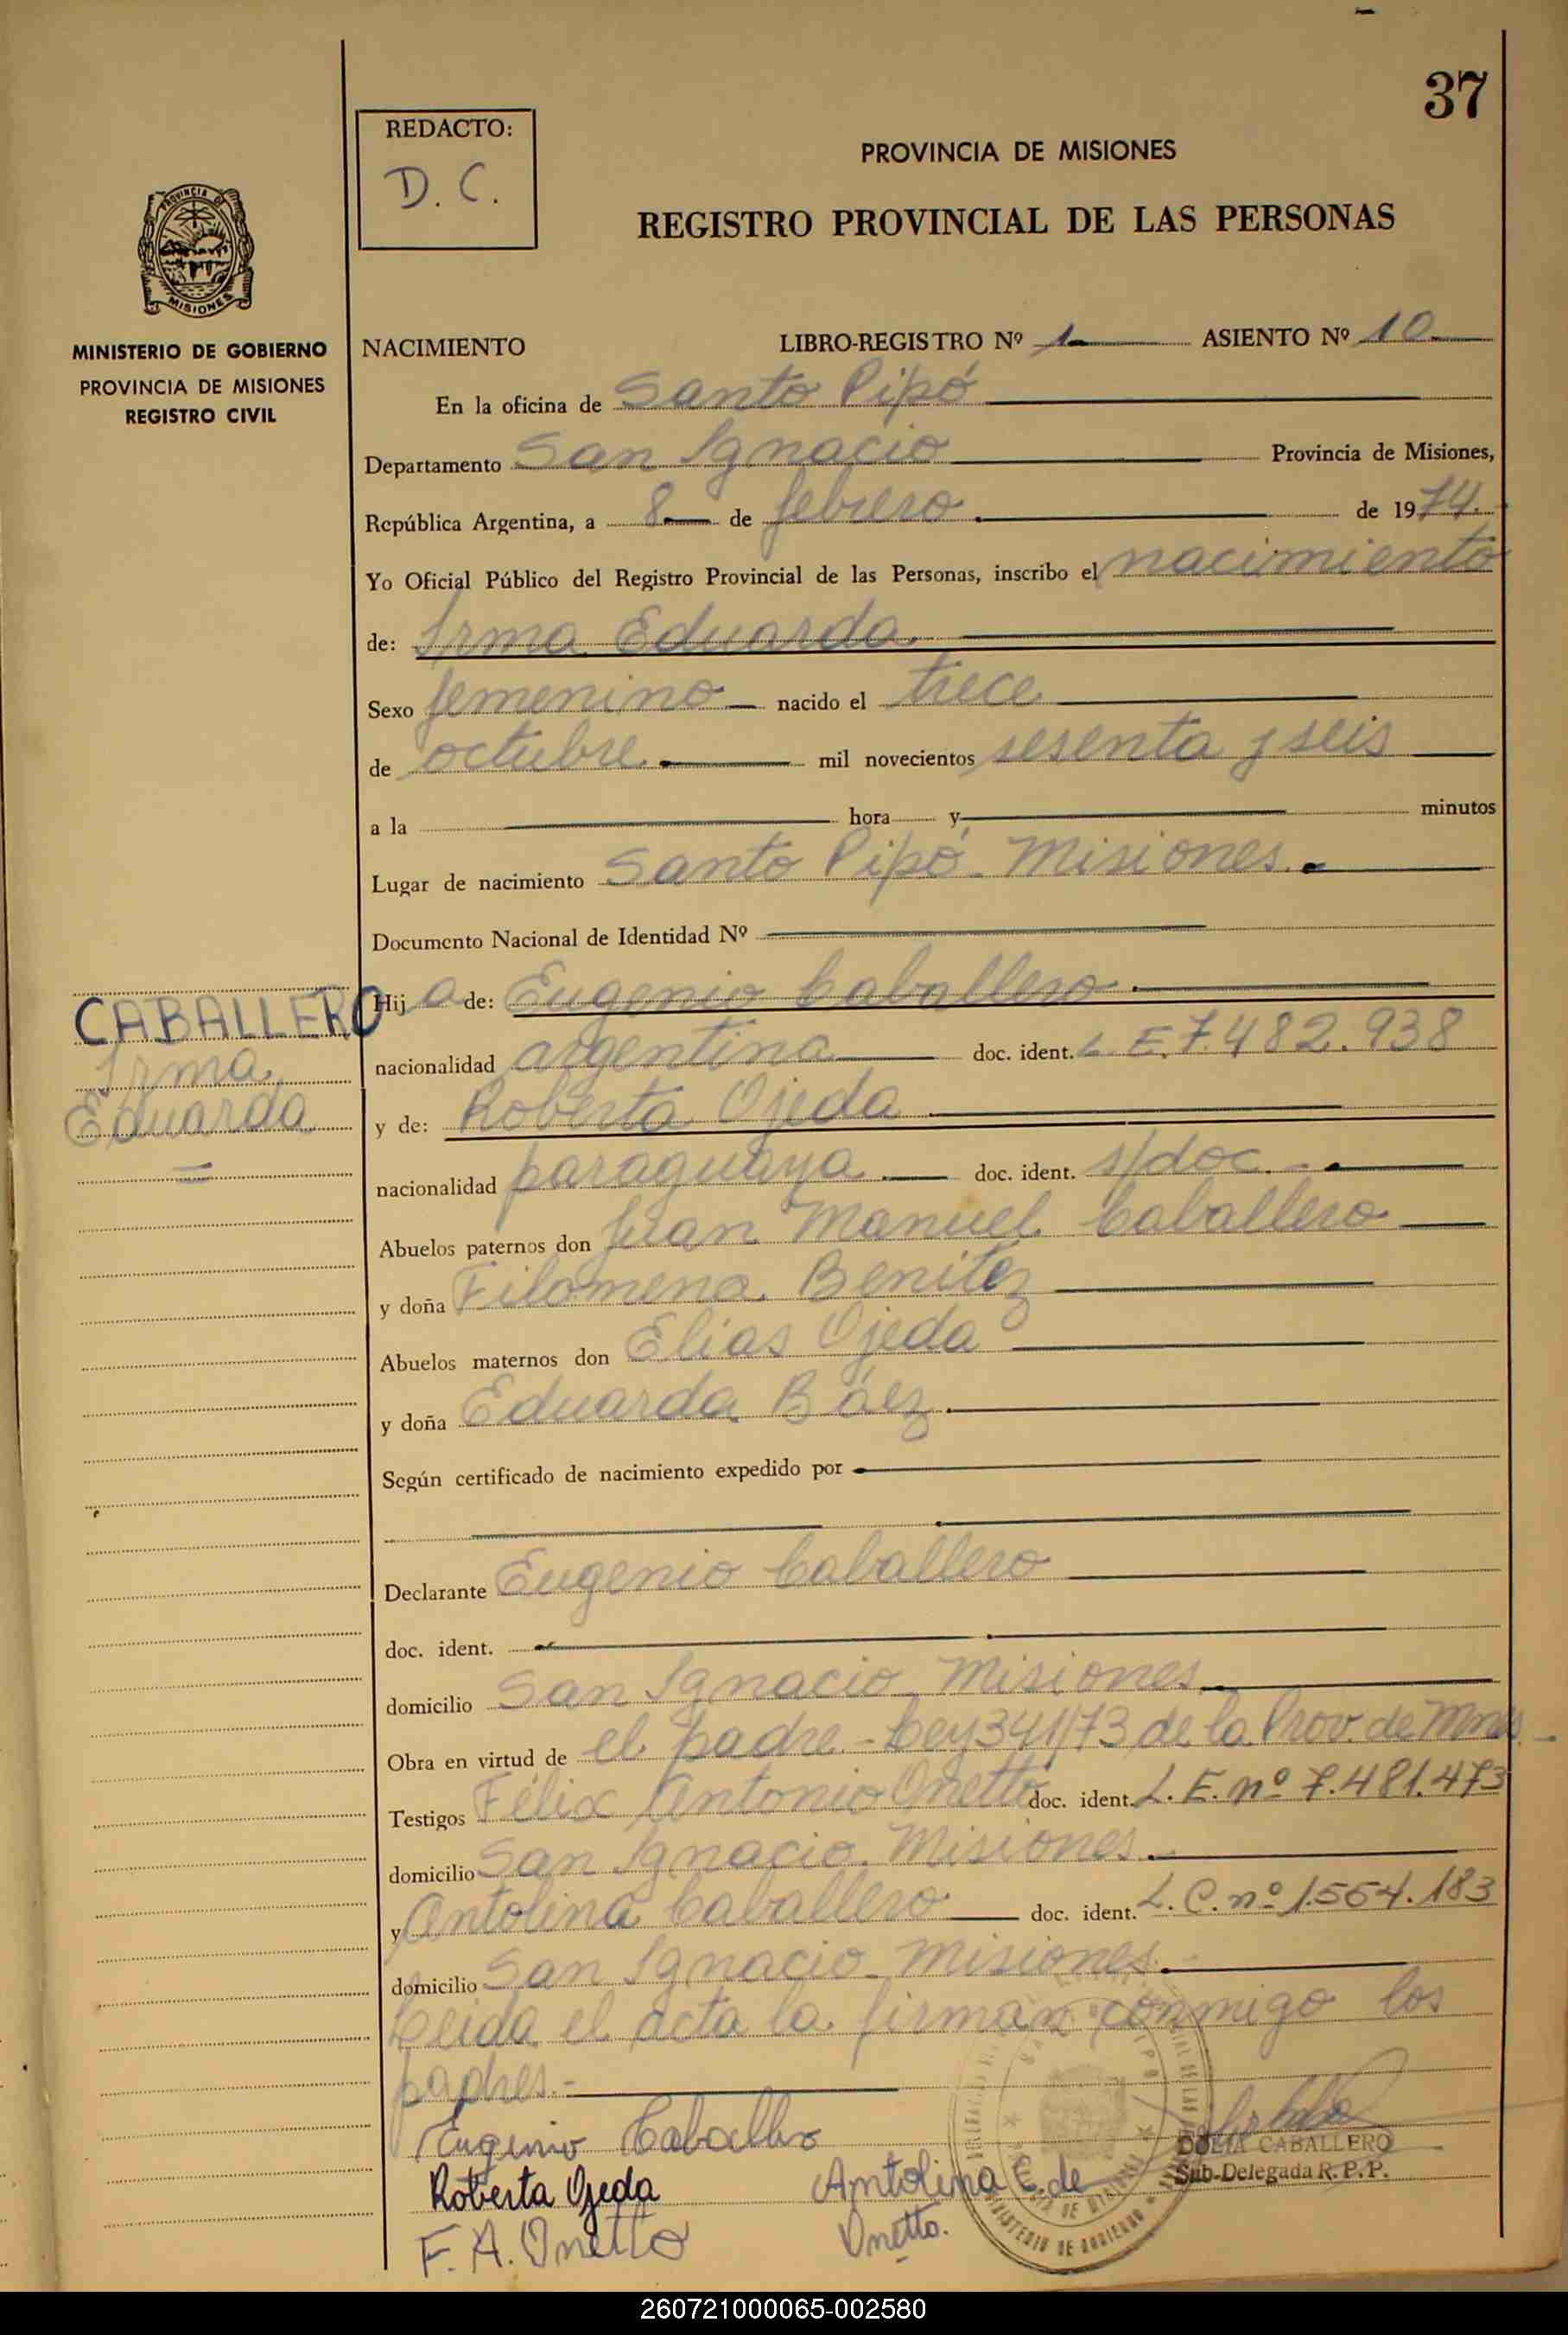 37
REDACTO:
D. C.
PROVINCIA DE MISIONES
REGISTRO PROVINCIAL DE LAS PERSONAS
PROVINCIA DE
MISIONES
MINISTERIO DE GOBIERNO
PROVINCIA DE MISIONES
REGISTRO CIVIL
NACIMIENTO LIBRO-REGISTRO Nº 1 ASIENTO Nº 10
En la oficina de Santo Pipó
Departamento San Ignacio Provincia de Misiones,
República Argentina, a 8 de febrero de 1974.
Yo Oficial Público del Registro Provincial de las Personas, inscribo el nacimiento
de: Irma Eduarda
Sexo femenino nacido el trece
de octubre mil novecientos sesenta y seis
a la hora y minutos
Lugar de nacimiento Santo Pipó - Misiones.
Documento Nacional de Identidad Nº
CABALLERO
Irma
Eduarda
Hij a de: Eugenio Caballero
nacionalidad argentina doc. ident. L. E. 7.482.938
y de: Roberta Ojeda
nacionalidad paraguaya doc. ident. s/doc.
Abuelos paternos don Juan Manuel Caballero
y doña Filomena Benítez
Abuelos maternos don Elias Ojeda
y doña Eduarda Báez
Según certificado de nacimiento expedido por
Declarante Eugenio Caballero
doc. ident.
domicilio San Ignacio, Misiones
Obra en virtud de el padre - Ley 341/73 de la Prov. de Mnes.
Testigos Félix Antonio Onetto doc. ident. L. E. nº 7.481.473
domicilio San Ignacio. Misiones.
y Antolina Caballero doc. ident. L. C. nº 1.554.183
domicilio San Ignacio - Misiones.
Leida el acta la firman conmigo los
padres.-
Eugenio Caballero
DELIA CABALLERO
Sub-Delegada R. P. P.
Roberta Ojeda Antolina C. de
F. A. Onetto Onetto.
MINISTERIO DE GOBIERNO
260721000065-002580